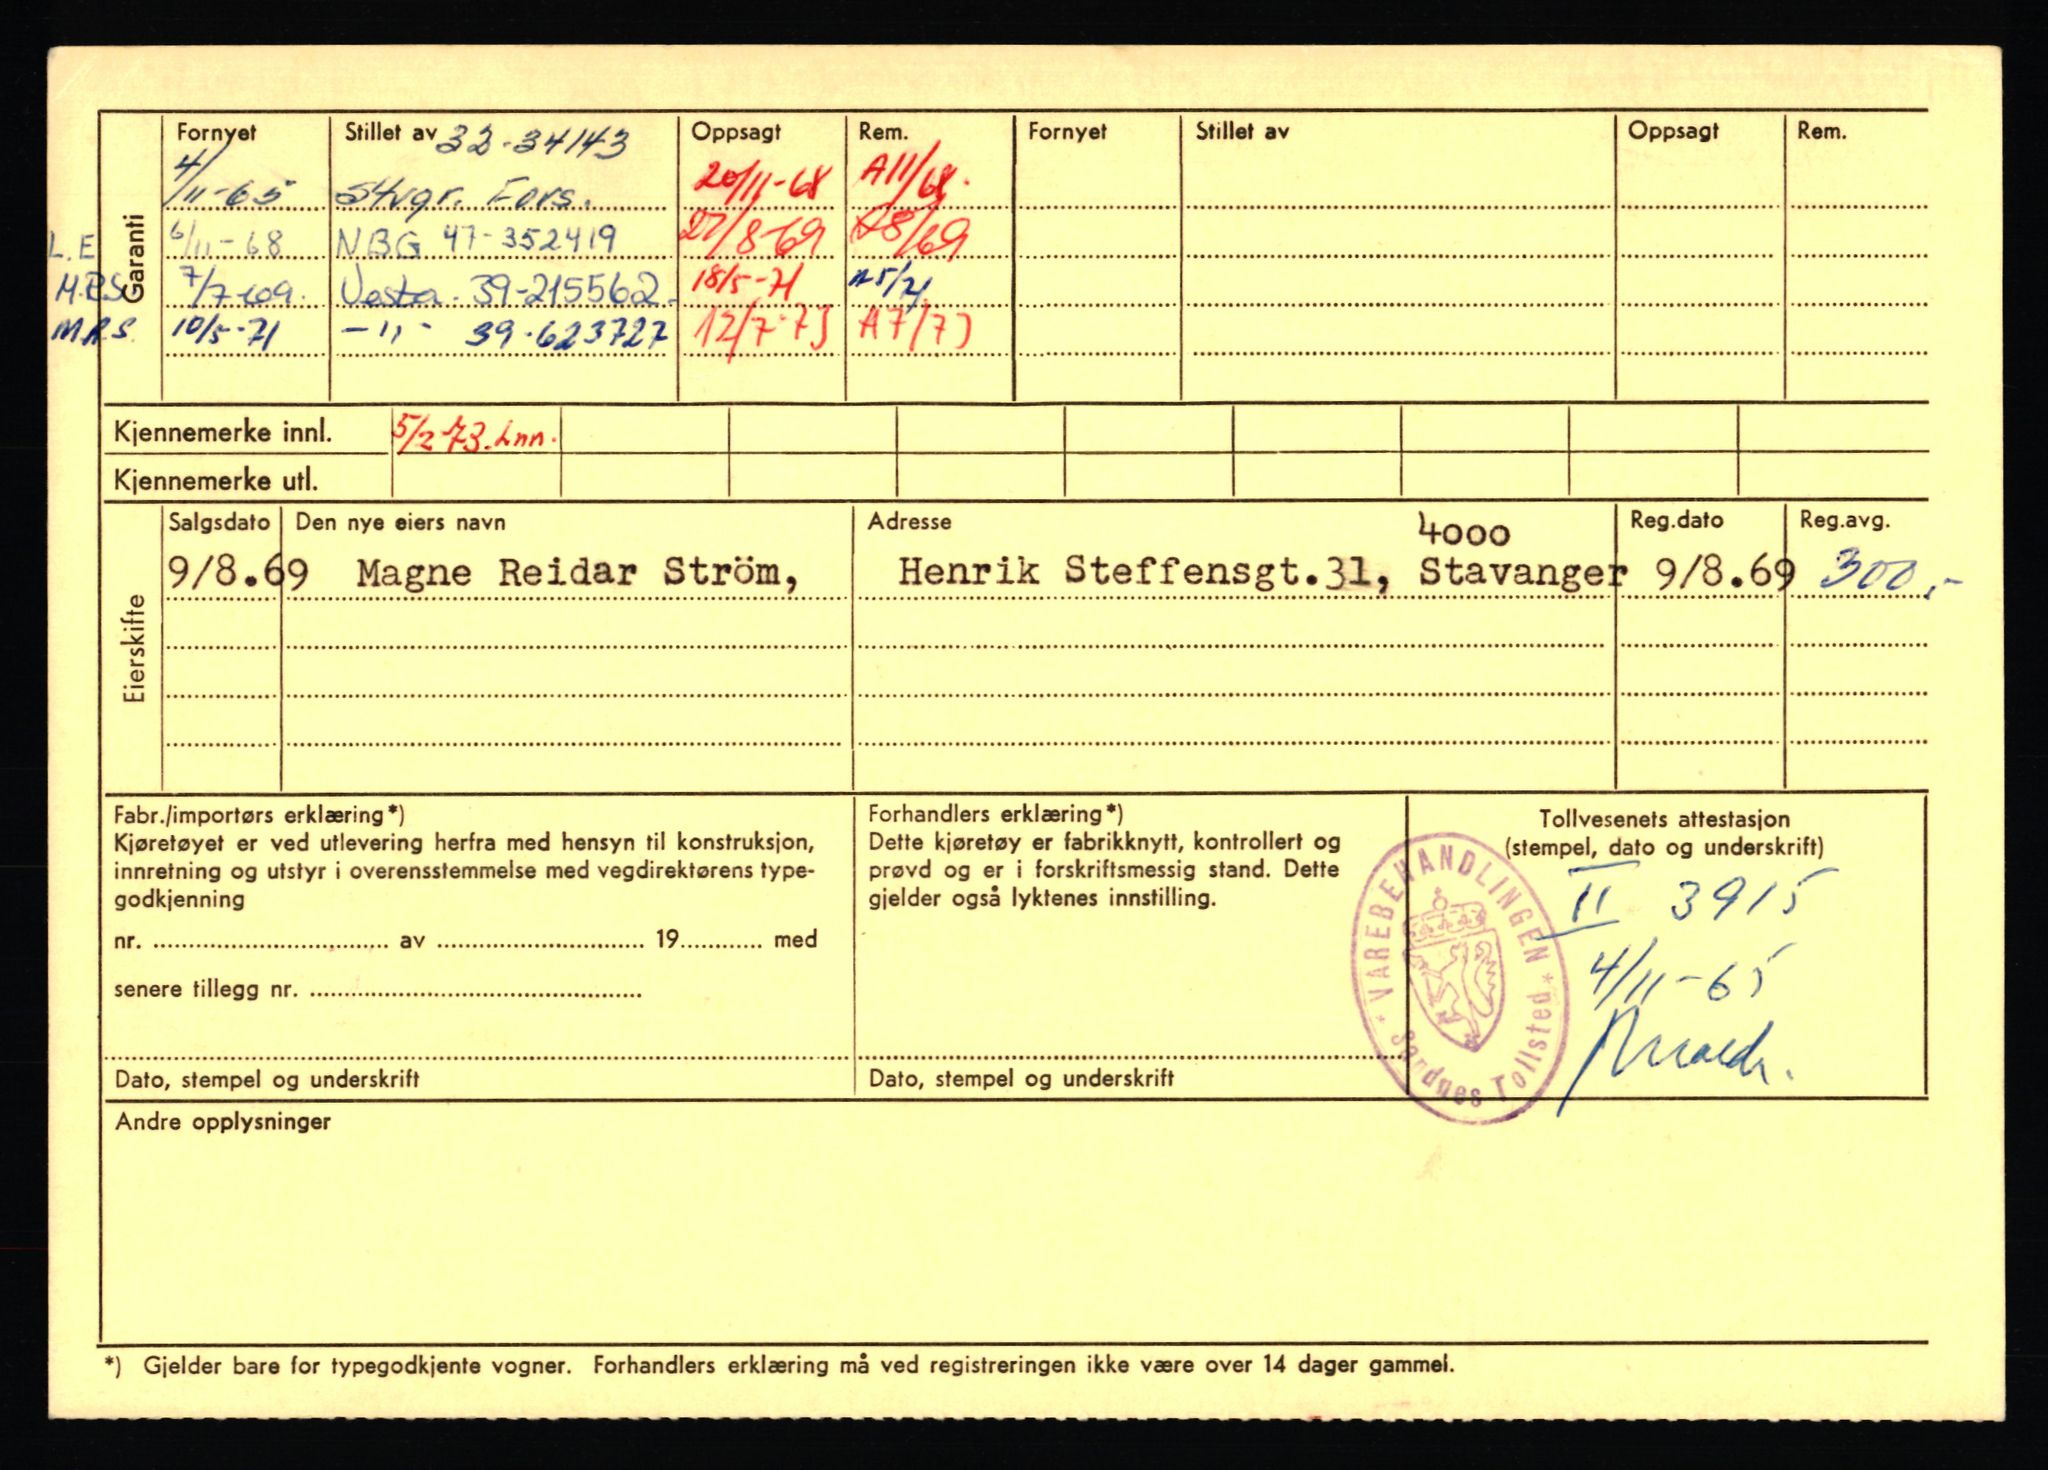 Garanti
Fornyet Stillet av 32-34143 Oppsagt Rem. Fornyet Stillet av Oppsagt Rem.
4/11-65 Stvgr. Fors. 20/11-68 A11/68.
L.E 6/11-68 NBG 47-352419 27/8-69 A8/69
M.R.S 7/7-69. Vesta. 39-215562. 18/5-71 A5/71
M.R.S. 10/5-71 -"- 39-623727 12/7-73 A7/73
Kjennemerke innl. 5/2-73. Inn.
Kjennemerke utl.
Eierskifte
Salgsdato Den nye eiers navn Adresse Reg.dato Reg.avg.
4000
9/8.69 Magne Reidar Ström, Henrik Steffensgt.31, Stavanger 9/8.69 300,-
Fabr./importørs erklæring*)
Kjøretøyet er ved utlevering herfra med hensyn til konstruksjon,
innretning og utstyr i overensstemmelse med vegdirektørens type-
godkjenning
nr. .................................. av .............................. 19............ med
senere tillegg nr. ................................................
Dato, stempel og underskrift
Forhandlers erklæring*)
Dette kjøretøy er fabrikknytt, kontrollert og
prøvd og er i forskriftsmessig stand. Dette
gjelder også lyktenes innstilling.
Dato, stempel og underskrift
Tollvesenets attestasjon
(stempel, dato og underskrift)
II 3915
4/11-65
* VAREBEHANDLINGEN *
Sandnes Tollsted
Andre opplysninger
*) Gjelder bare for typegodkjente vogner. Forhandlers erklæring må ved registreringen ikke være over 14 dager gammel.